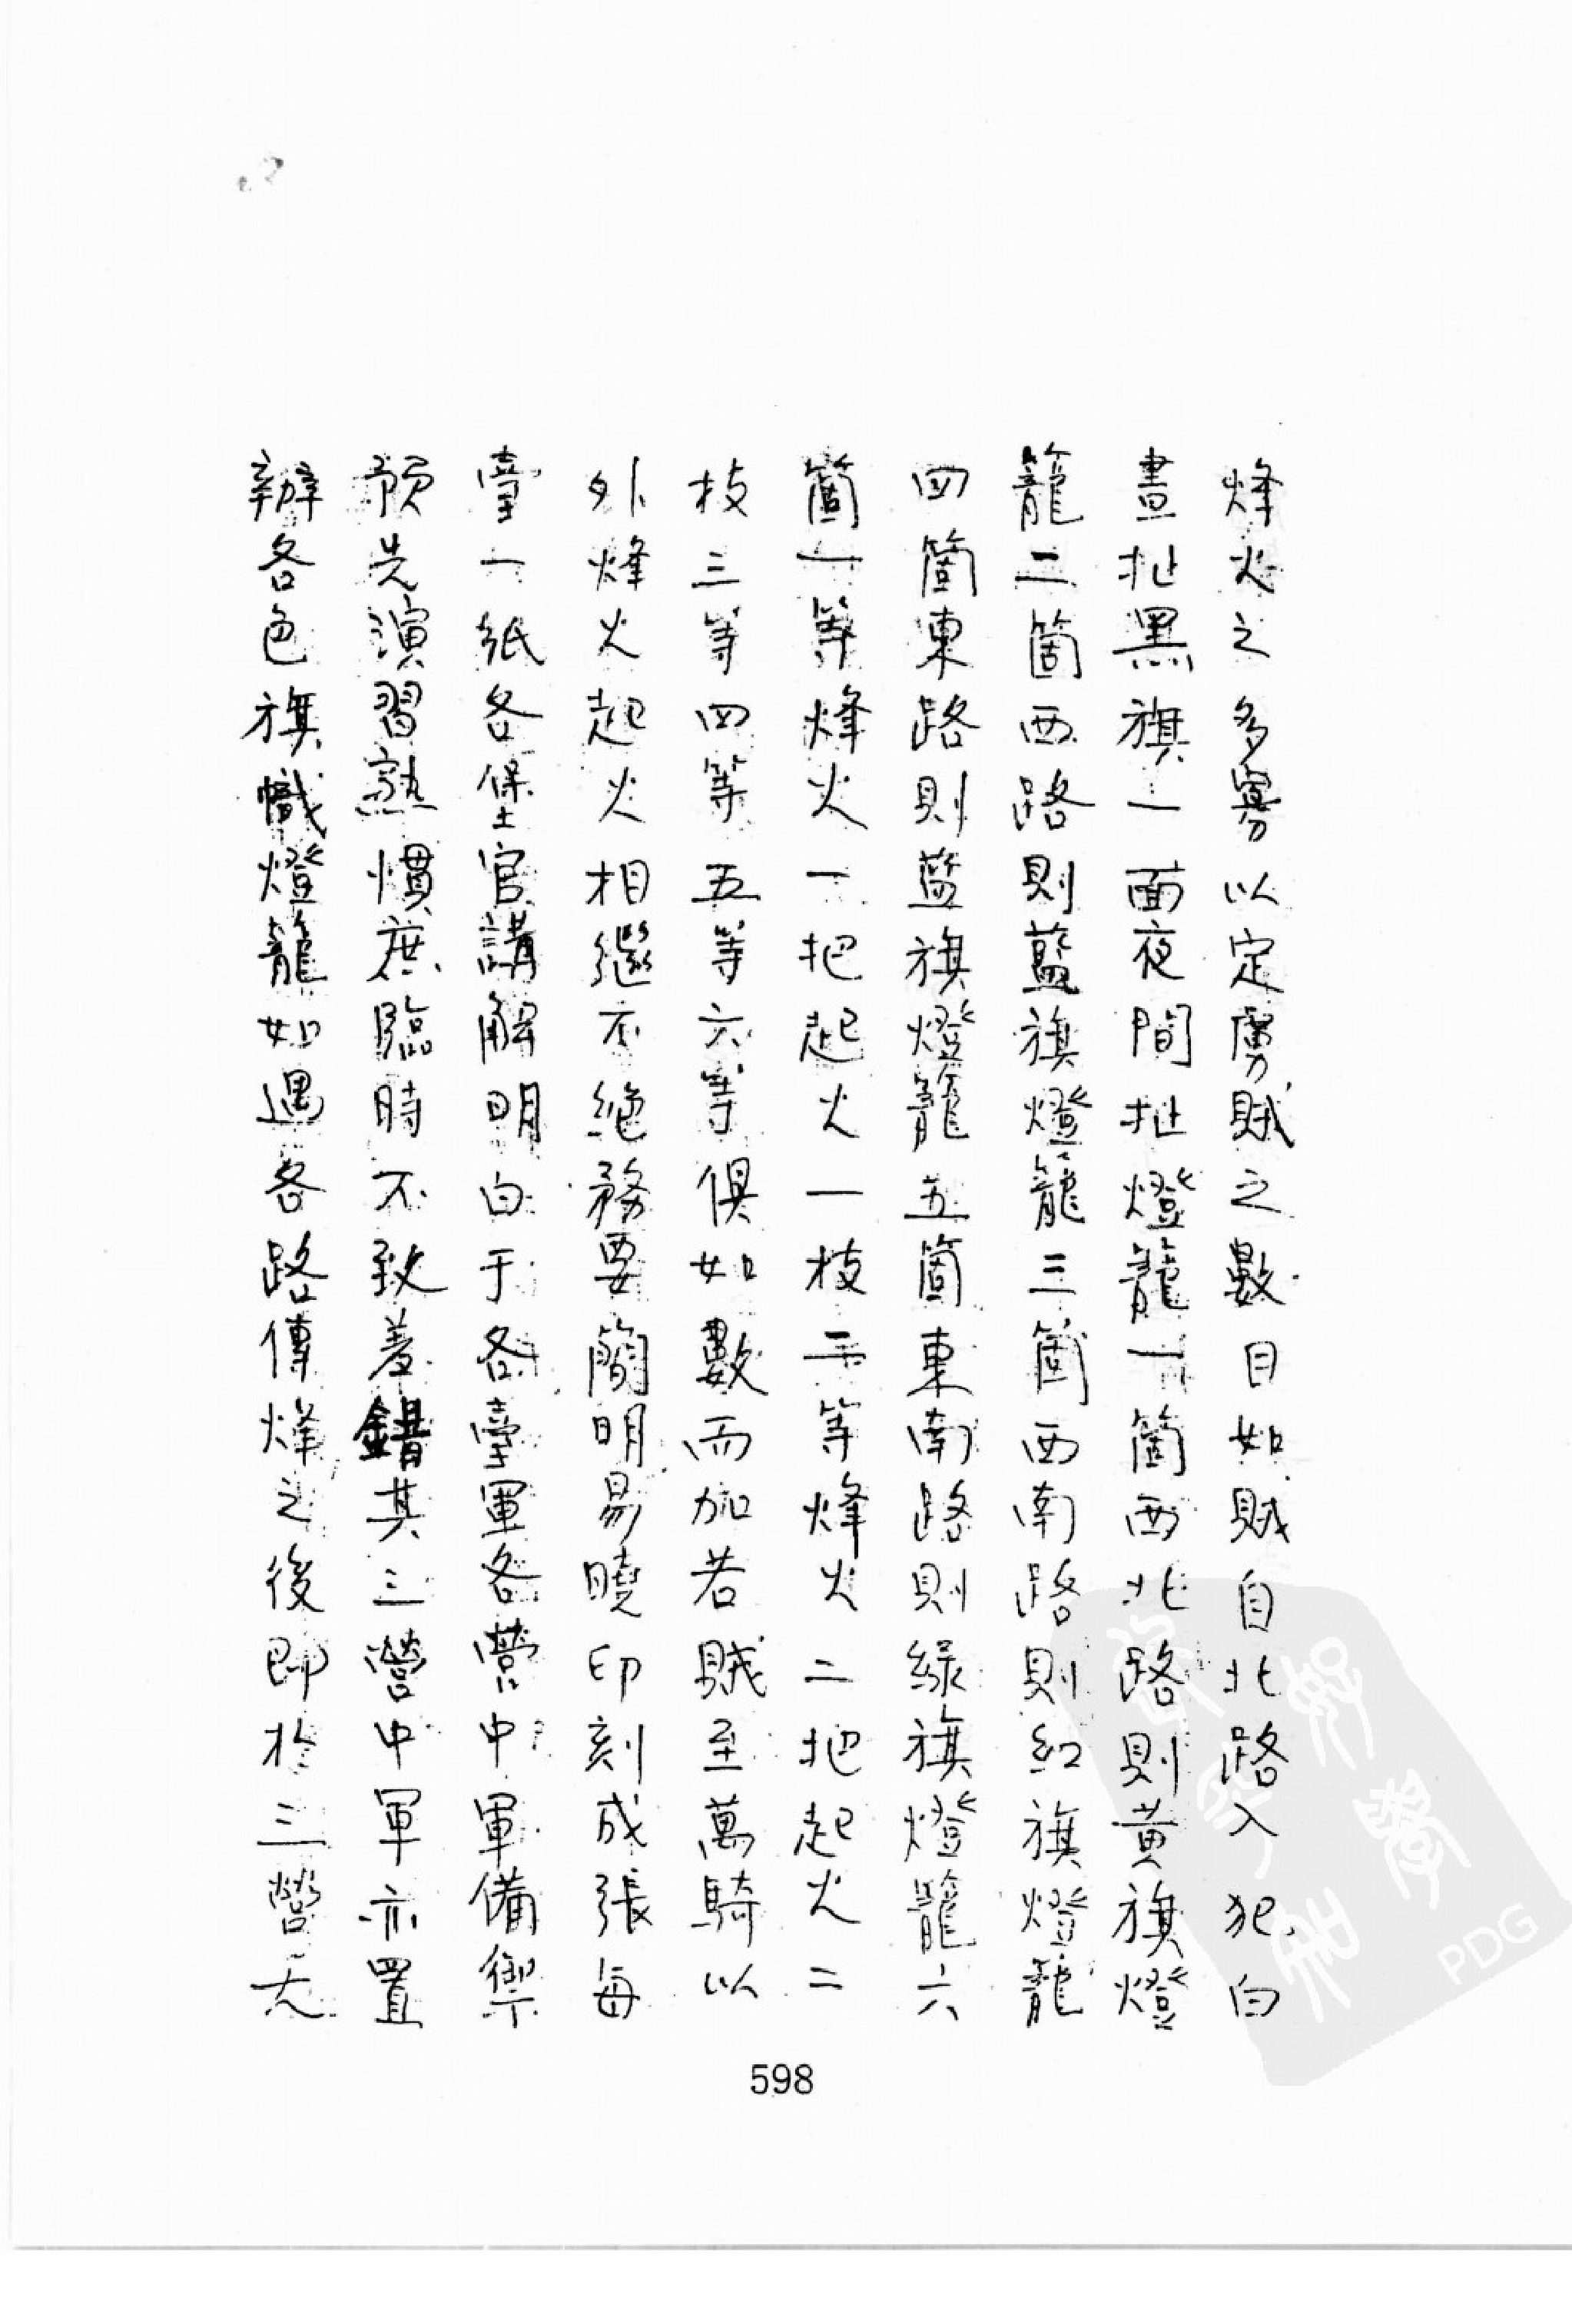 烽火之多寡以定虜賊之數目如賊自北路入犯白
晝扯黑旗一面夜間扯燈籠一箇西北路則黄旗燈
籠二箇西路則藍旗燈籠三箇西南路則紅旗燈籠
四箇東路則藍旗燈籠五箇東南路則緑旗燈籠六
箇一等烽火一把起火一枝二等烽火二把起火二
枝三等四等五等六等俱如數而加若賊至萬騎以
外烽火起火相繼不絶務要簡明易曉印刻成張每
臺一紙各堡官講解明白于各臺軍各營中軍備禦
預先演習熟慣庶臨時不致差錯其三營中軍亦置
辦各色旗幟燈籠如遇各路傳烽之後即於三營天
598
PDG